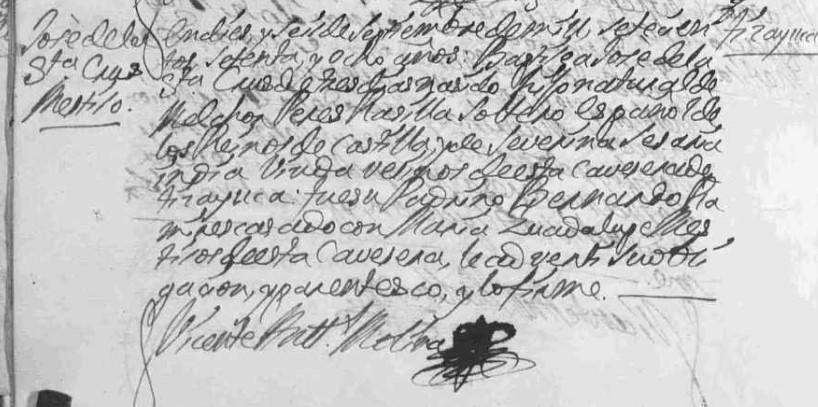 Jose de la
Sta Crus
Mestiso.
Tisayuca
En dies, y seis de Septiembre de mill, setecien
tos, setenta, y ocho años: Bautisè a Jose de la
Sta Crus de tres dias nasido hijo natural de
Melchor Peres soltero Español de
los Reinos de Castilla, y de Severina
india Viuda vesinos de esta Cavesera de
Tisayuca: fue su Padrino Bernardo Ra
mires casado con Maria Guadalupe Mes
tisos de esta Cavesera, le advertì su obli
gacion, y parentesco, y lo firmè.
Vicente Batt.ª Molina